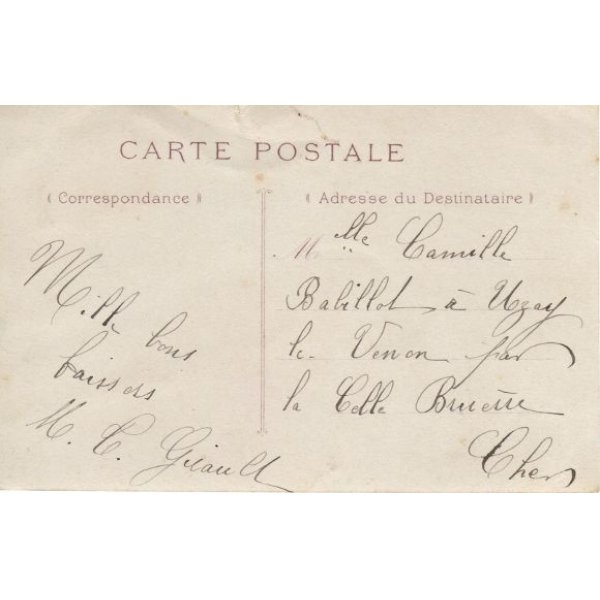 CARTE POSTALE
Correspondance
Mille bons
baissers
M. C. Girault
Adresse du Destinataire
Mlle Camille
Babillot à Uzay
le Venon par
la Celle Bruère
Cher